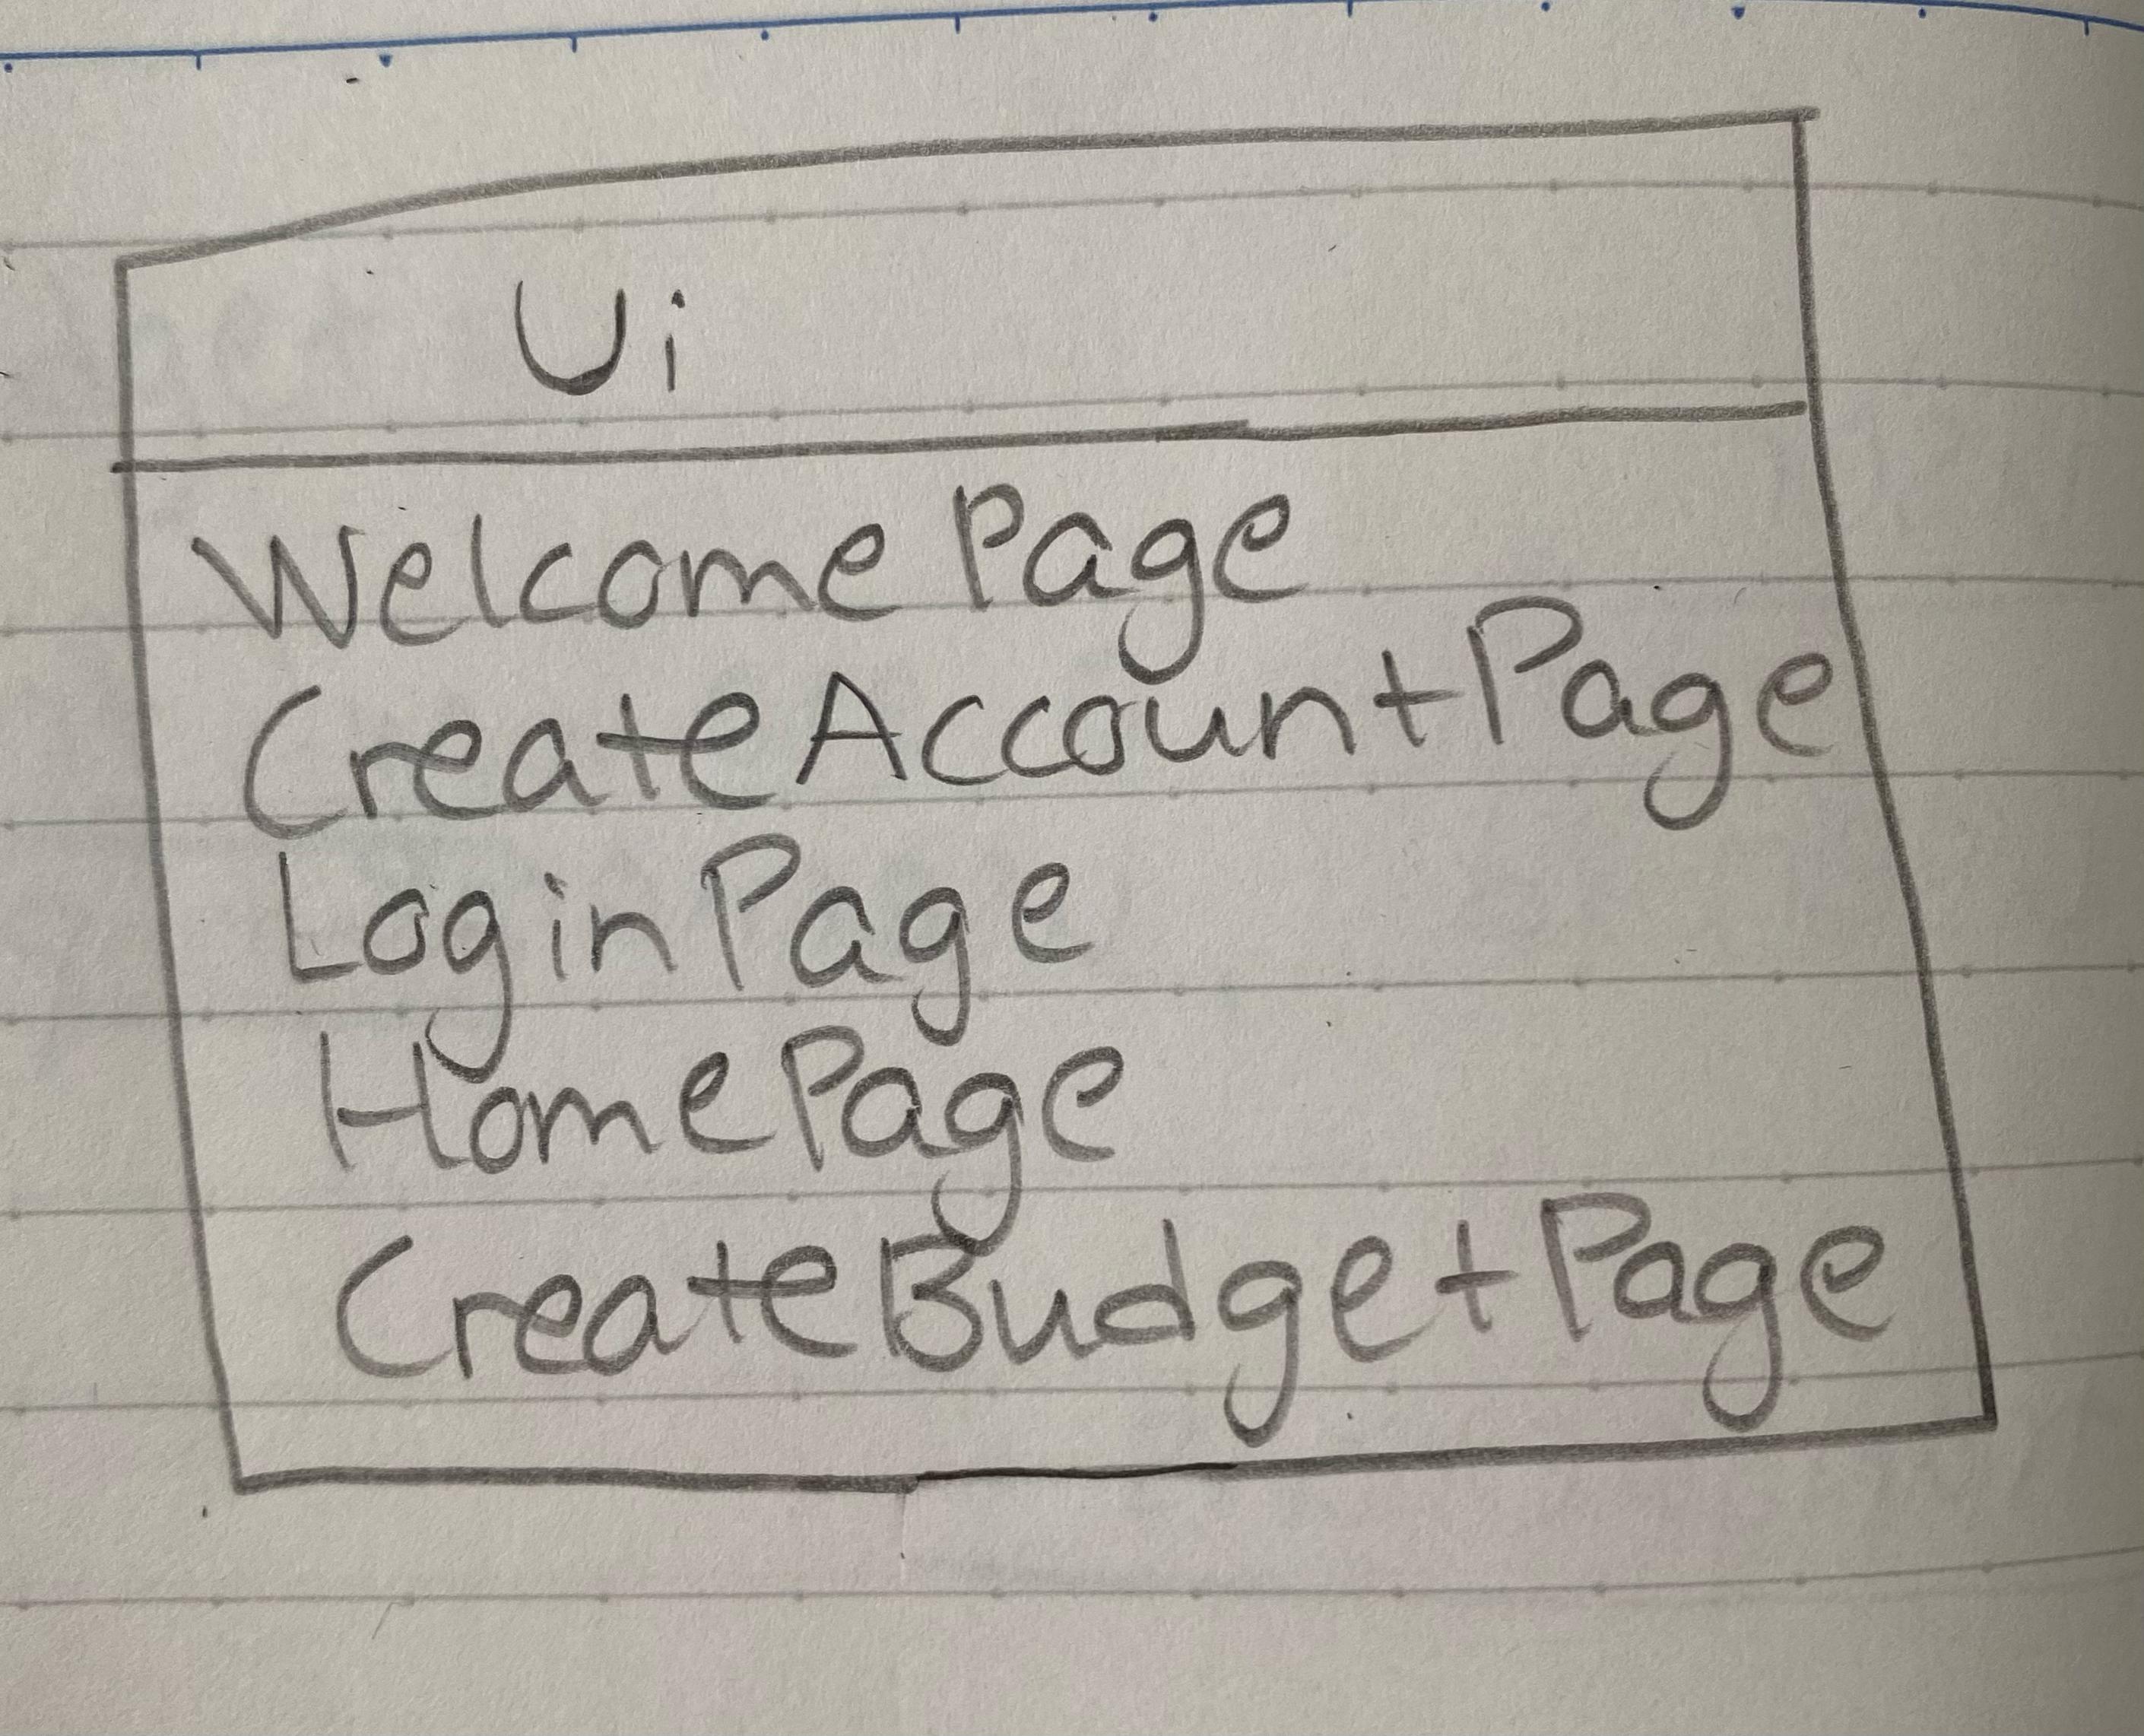 Ui
WelcomePage
CreateAccountPage
LoginPage
HomePage
CreateBudgetPage